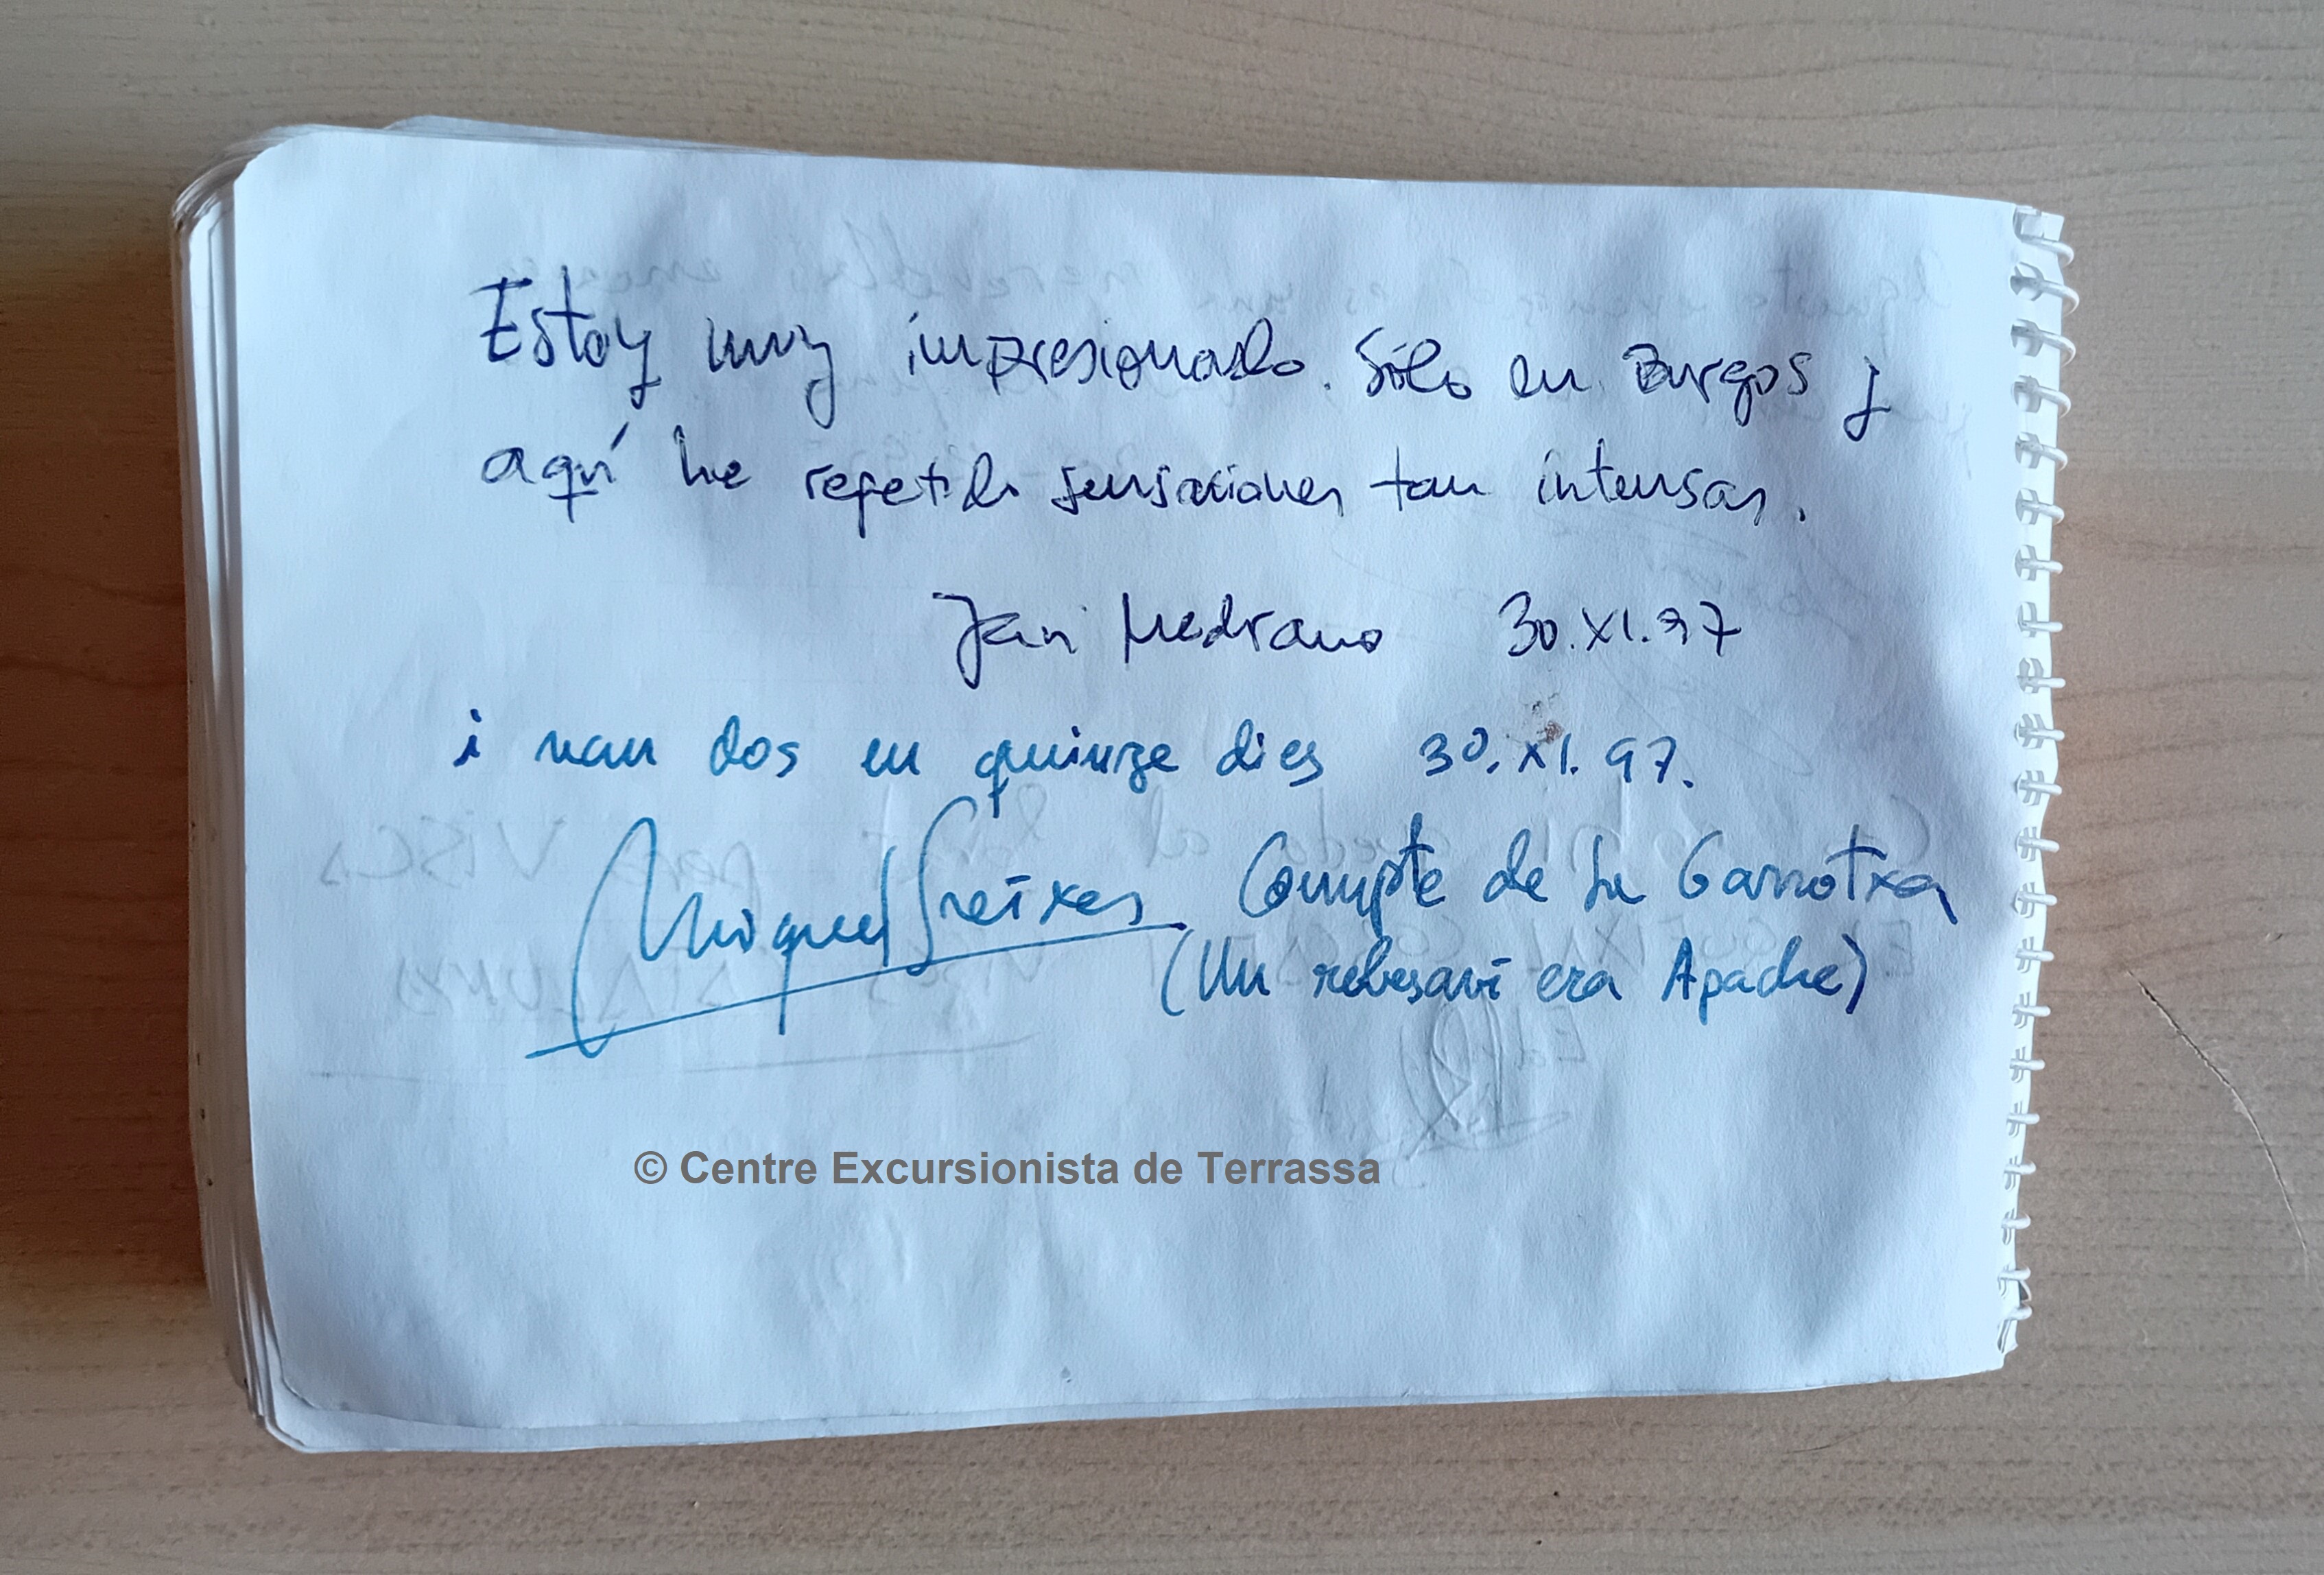 Estoy muy impresionado. Sólo en Burgos y
aquí he repetido sensaciones tan intensas.
Jan Medrano 30.XI.97
i van dos en quinze dies 30.XI.97.
Miquel Freixes Compte de La Garrotxa
(Un rebesavi era Apache)
© Centre Excursionista de Terrassa